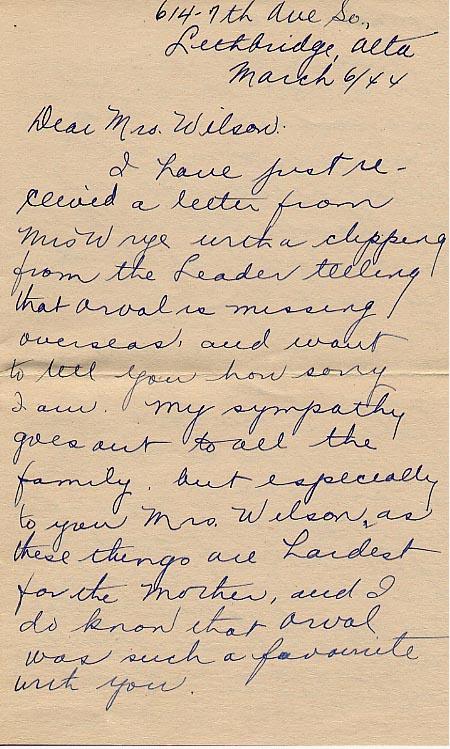 614-7th Ave So.,
Lethbridge, Alta
March 6/44
Dear Mrs. Wilson.
I have just re-
ceived a letter from
Mrs Wrye with a clipping
from the Leader telling
that Orval is missing
overseas, and want
to tell you how sorry
I am. My sympathy
goes out to all the
family, but especially
to you Mrs. Wilson, as
these things are hardest
for the Mother, and I
do know that Orval
was such a favourite
with you.